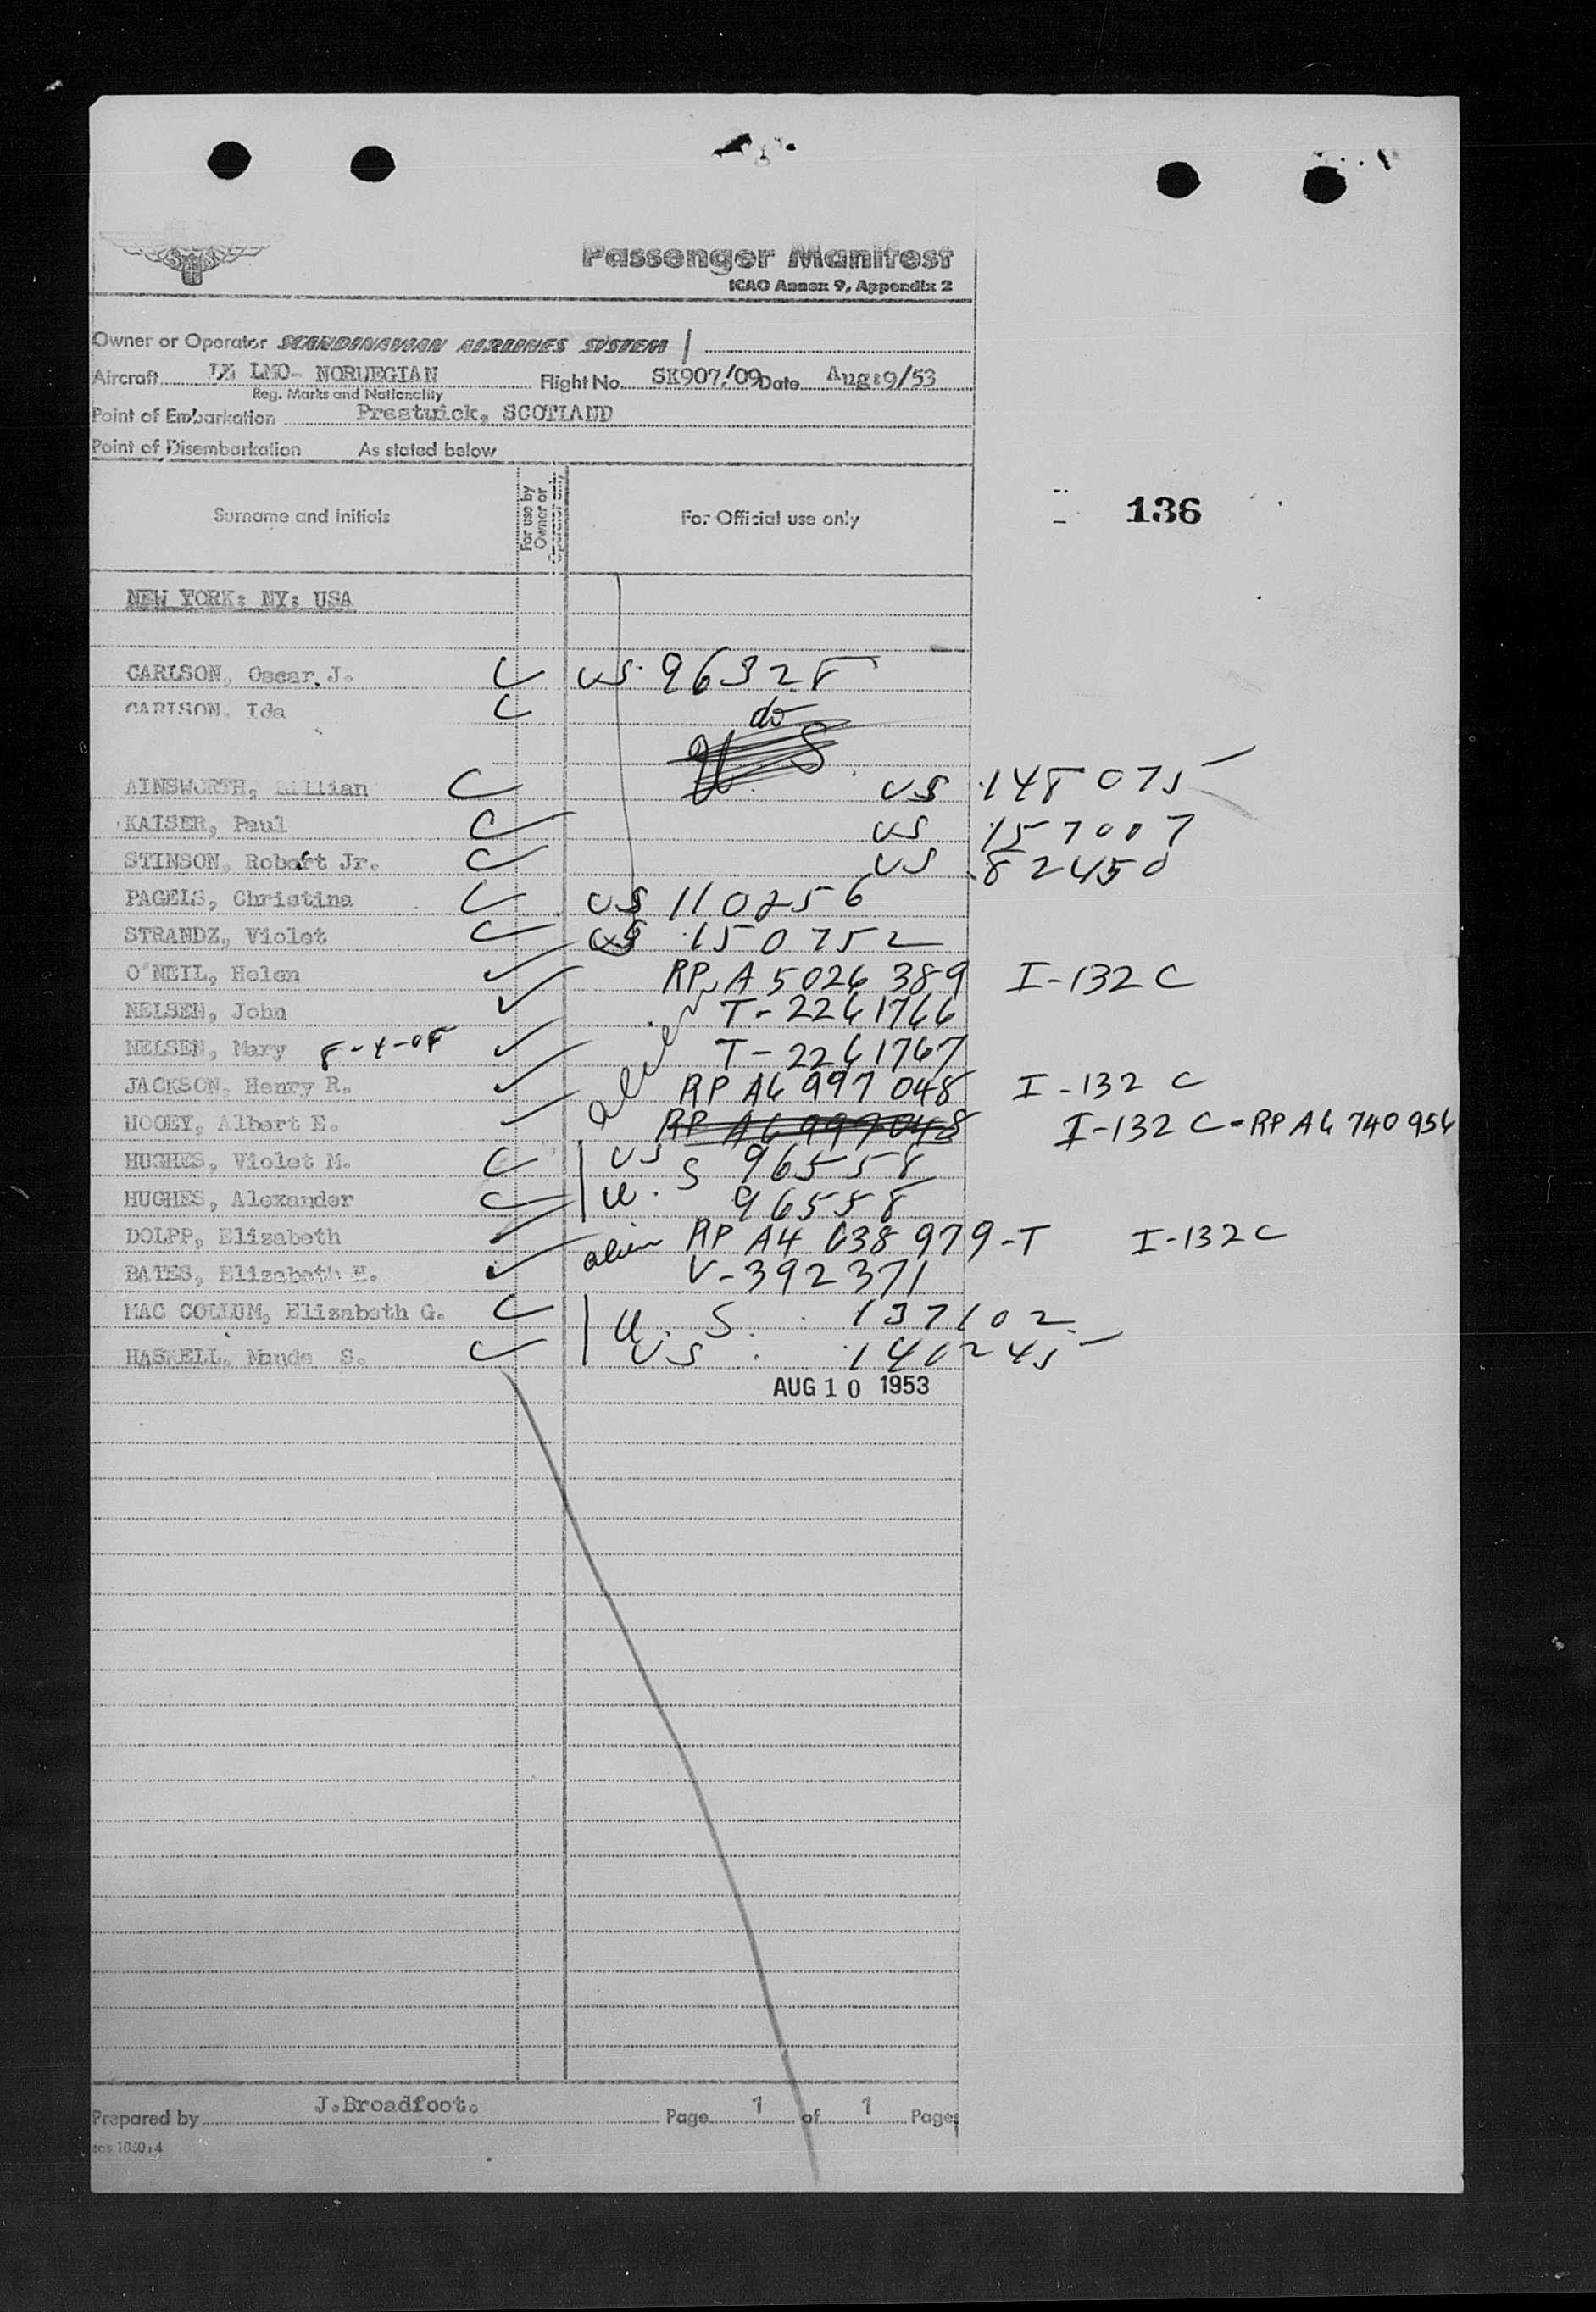 Passenger Manifest
ICAO Annex 9, Appendix 2
Owner or Operator SCANDINAVIAN AIRLINES SYSTEM
Aircraft LN LMO- NORWEGIAN Flight No. SK907/09 Date Aug:9/53
Reg. Marks and Nationality
Point of Embarkation Prestwick, SCOTLAND
Point of Disembarkation As stated below
Surname and initials For use by Owner or Operator only For Official use only
136
NEW YORK: NY: USA
CARLSON, Oscar J. US 96328
CARLSON, Ida do
U.S
AINSWORTH, Lillian US 148075
KAISER, Paul US 157007
STINSON, Robert Jr. US 82450
PAGELS, Christina US 110256
STRANDZ, Violet US 150752
O'NEIL, Helen RP A5026389 I-132C
NELSEN, John T-2261766
NELSEN, Mary 8-4-08 T-2261767
alien
JACKSON, Henry R. RP A6 997 048 I-132 C
HOOEY, Albert E. RP A6 997048 I-132 C-RP A6 740 956
HUGHES, Violet M. US 96558
HUGHES, Alexander U.S 96558
DOLPP, Elizabeth alien RP A4 638 979-T I-132C
BATES, Elizabeth H. V-392371
MAC COLLUM, Elizabeth G. U.S. 137102
HASKELL, Maude S. US 140245
AUG 10 1953
Prepared by J.Broadfoot. Page 1 of 1 Pages
sas 1030:4